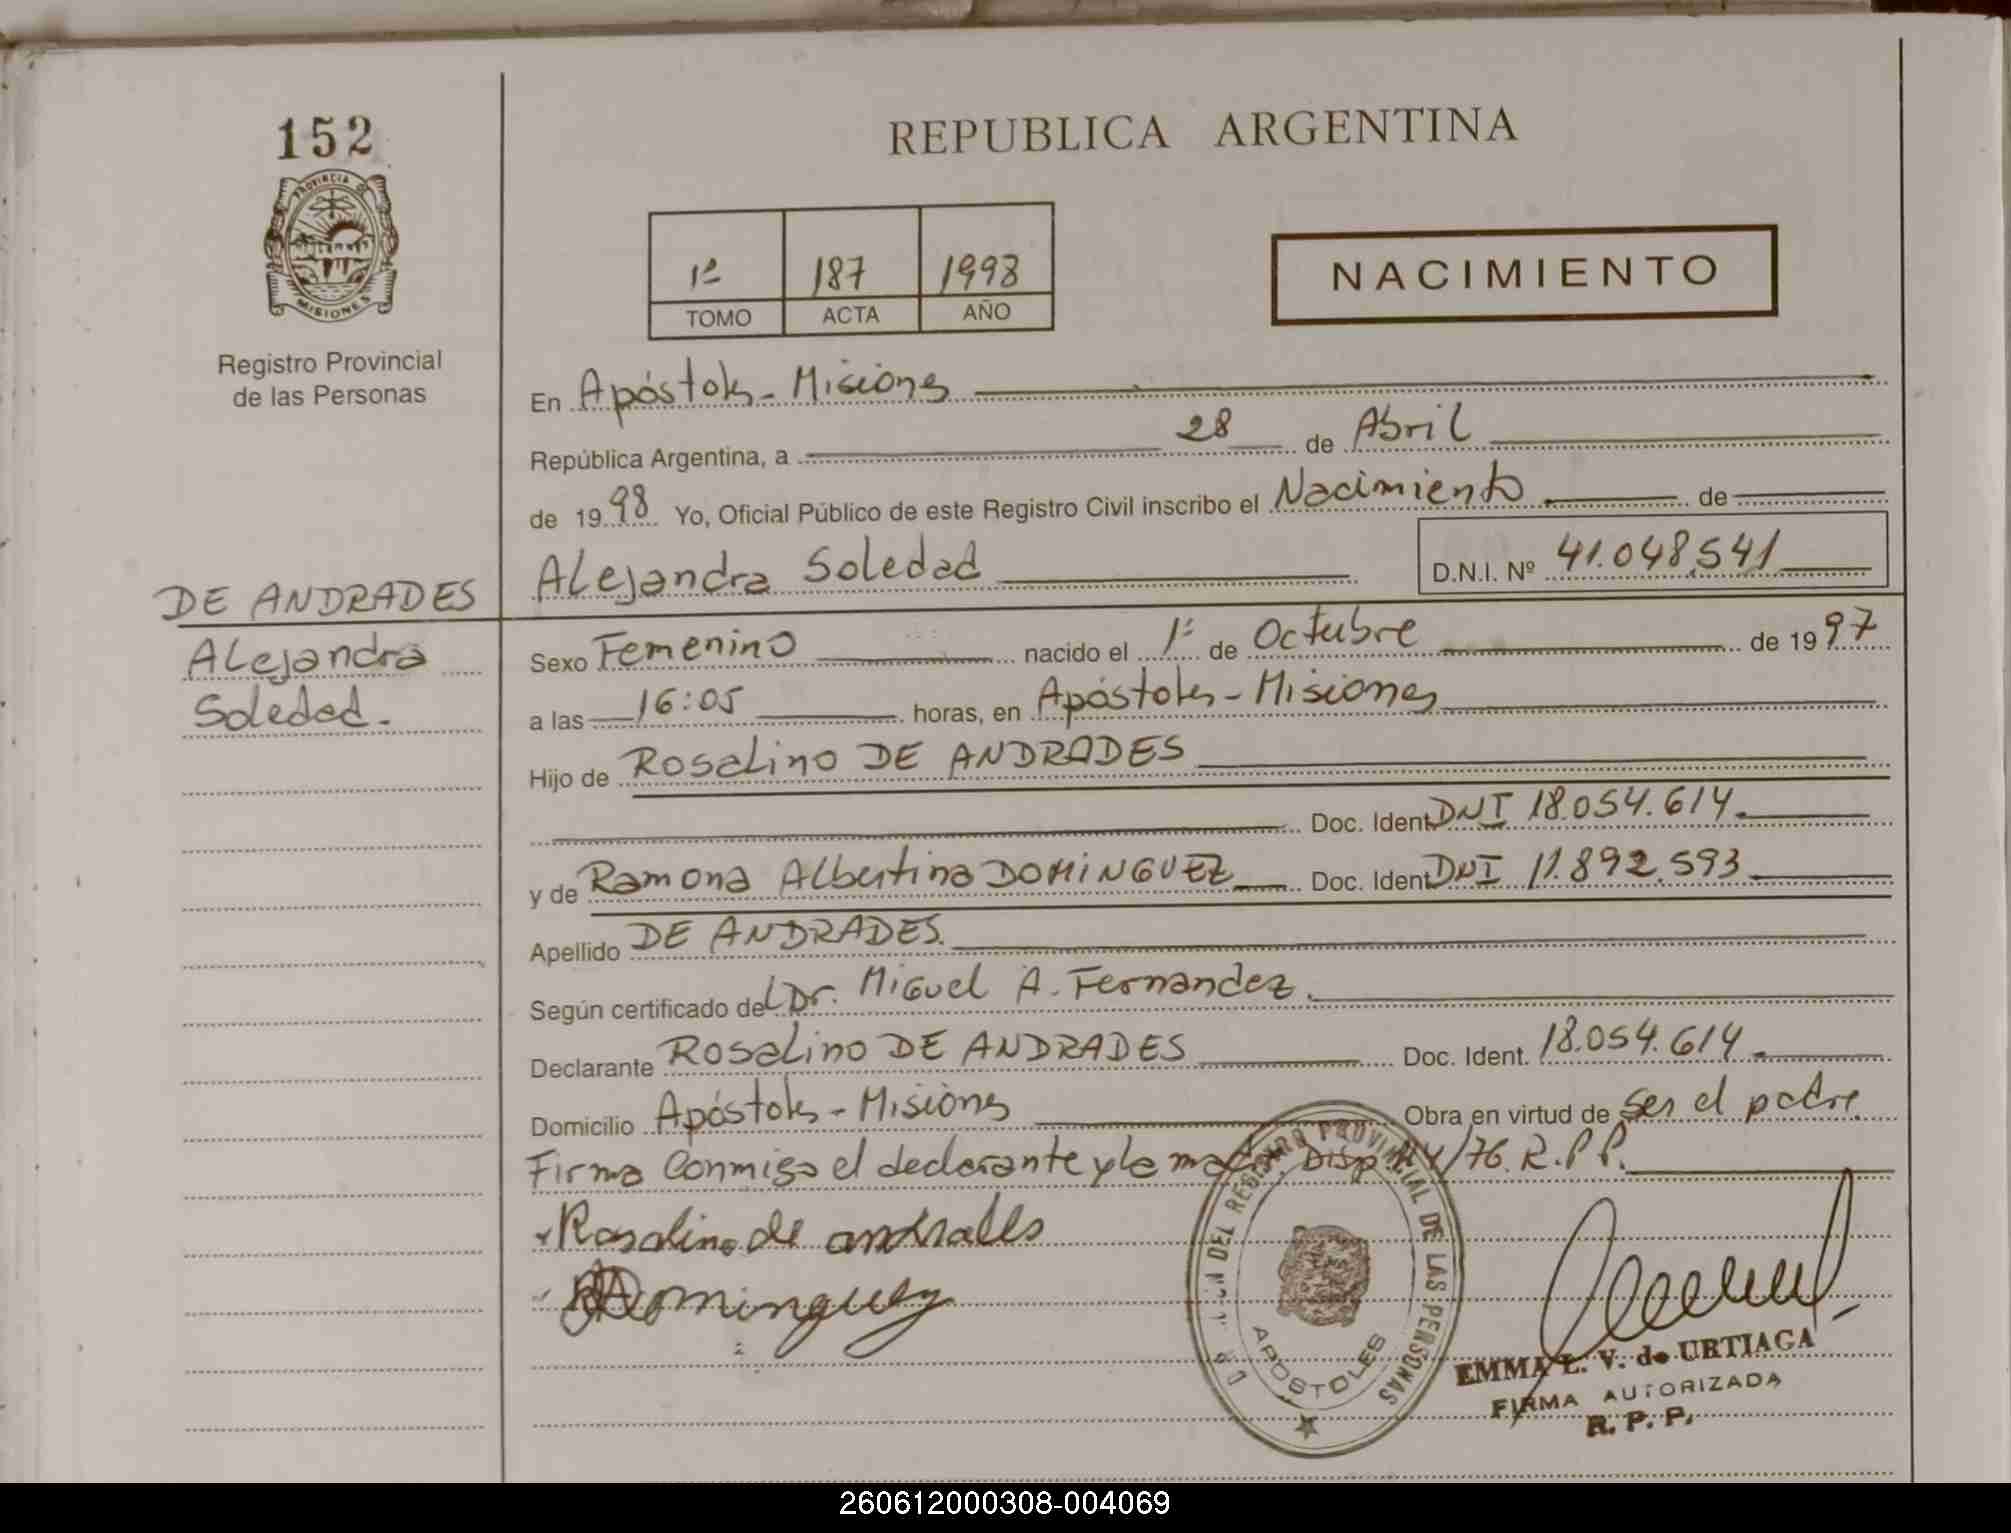 152
REPUBLICA ARGENTINA
PROVINCIA DE
MISIONES
Registro Provincial
de las Personas
1º 187 1998
TOMO ACTA AÑO
NACIMIENTO
En Apóstoles - Misiones
República Argentina, a 28 de Abril
de 1998 Yo, Oficial Público de este Registro Civil inscribo el Nacimiento de
Alejandra Soledad D.N.I. Nº 41.048.541
DE ANDRADES
Alejandra
Soledad.
Sexo Femenino nacido el 1º de Octubre de 1997
a las 16:05 horas, en Apóstoles - Misiones
Hijo de Rosalino DE ANDRADES
Doc. Ident. DNI 18.054.614
y de Ramona Albertina DOMINGUEZ Doc. Ident. DNI 11.892.593
Apellido DE ANDRADES.
Según certificado del Dr. Miguel A. Fernandez.
Declarante Rosalino DE ANDRADES Doc. Ident. 18.054.614
Domicilio Apóstoles - Misiones Obra en virtud de ser el padre
Firma conmigo el declarante y la madre. Disp. /76. R.P.P.
Rosalino de andrades
RADominguez
DEL REGISTRO PROVINCIAL DE LAS PERSONAS
APOSTOLES
EMMA L. V. de URTIAGA
FIRMA AUTORIZADA
R. P. P.
260612000308-004069